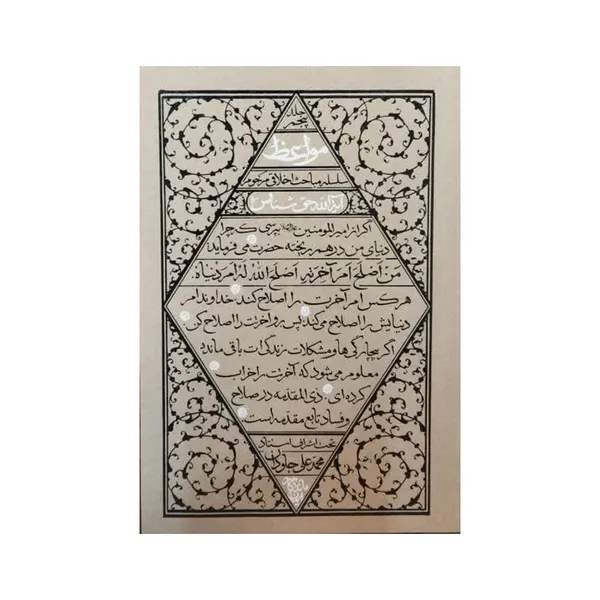 جلد
پنجم
مواعظ
سلسله مباحث اخلاقی مرحوم
آیةالله حق شناس
اگر از امیرالمومنین بپرسی که چرا
دنیای من درهم ریخته حضرت می فرماید
مَن اَصلَحَ اَمرَ آخرتِهِ اَصلَحَ اللهُ لَهُ اَمرَ دنیاه.
هر کس امر آخرت را اصلاح کند، خداوند امر
دنیایش را اصلاح می کند، پس برو آخرتت را اصلاح کن.
اگر بیچارگی ها و مشکلات زندگی ات باقی مانده
معلوم می شود که آخرتت را خراب
کرده ای. ذی المقدمه در صلاح
و فساد تابع مقدمه است.
تحت اشراف استاد
محمدعلی جاودان